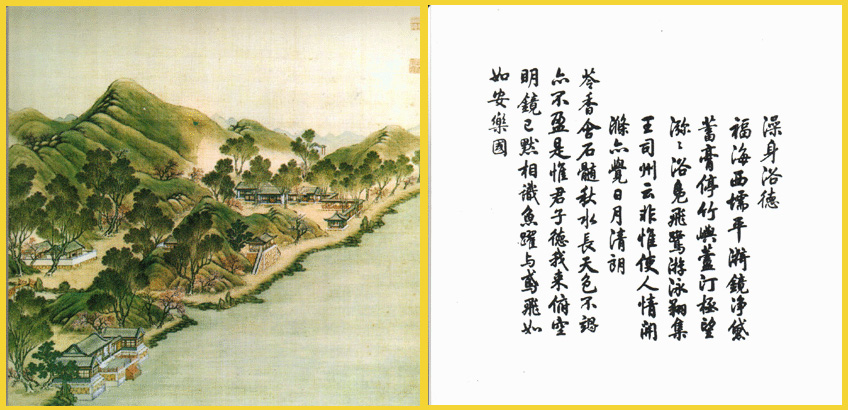 澡身浴德
福海西壖平漪鏡净黛
蓄膏停竹嶼蘆汀極望
瀰〻浴鳧飛鷺游泳翔集
王司州云非惟使人情開
滌亦覺日月清朗
苓香含石髓秋水長天色不竭
亦不盈是惟君子德我來俯空
明鏡已默相識魚躍与鳶飛如
如安樂國